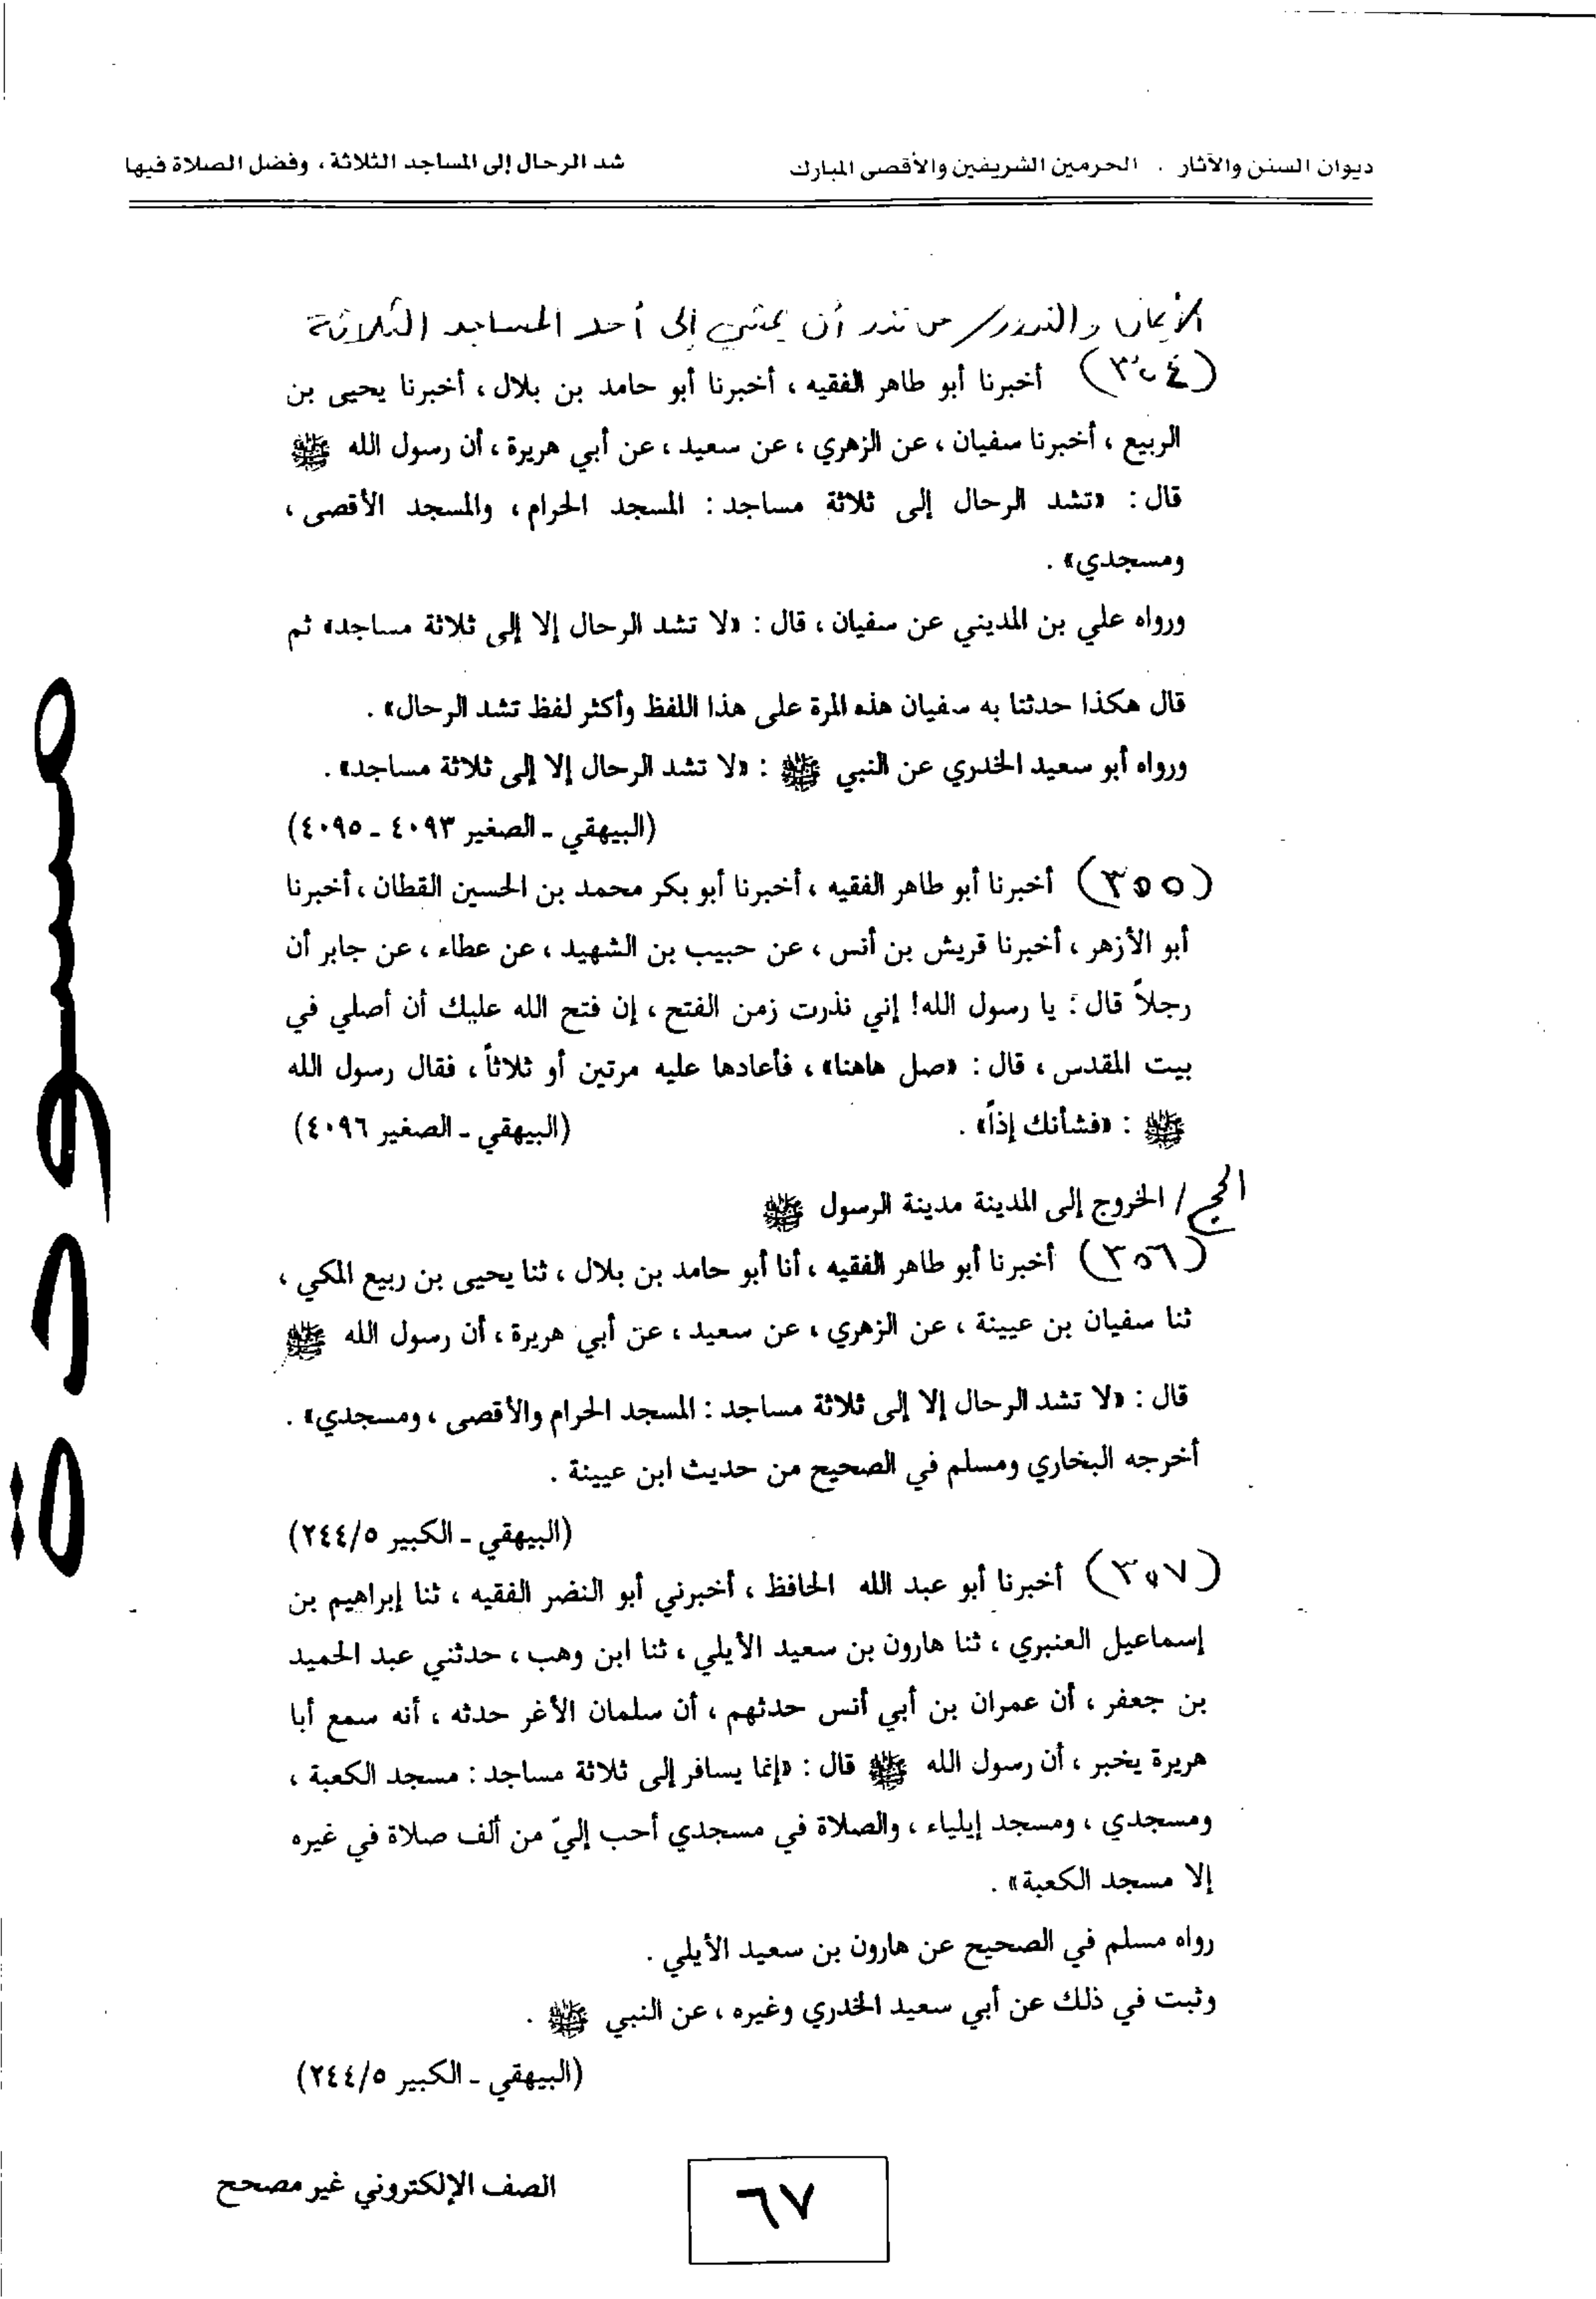 ديوان السنن والآثار . الحرمين الشريفين والأقصى المبارك شد الرحال إلى المساجد الثلاثة ، وفضل الصلاة فيها
الأيمان والنذور / من نذر أن يمشي إلى أحد المساجد الثلاثة
(٣٥٤) أخبرنا أبو طاهر الفقيه ، أخبرنا أبو حامد بن بلال ، أخبرنا يحيى بن
الربيع ، أخبرنا سفيان ، عن الزهري ، عن سعيد ، عن أبي هريرة ، أن رسول الله ﷺ
قال : «تشد الرحال إلى ثلاثة مساجد : المسجد الحرام ، والمسجد الأقصى ،
ومسجدي» .
ورواه علي بن المديني عن سفيان ، قال : «لا تشد الرحال إلا إلى ثلاثة مساجد» ثم
قال هكذا حدثنا به سفيان هذه المرة على هذا اللفظ وأكثر لفظ تشد الرحال» .
ورواه أبو سعيد الخدري عن النبي ﷺ : «لا تشد الرحال إلا إلى ثلاثة مساجد» .
(البيهقي ـ الصغير ٤٠٩٣ ـ ٤٠٩٥)
(٣٥٥) أخبرنا أبو طاهر الفقيه ، أخبرنا أبو بكر محمد بن الحسين القطان ، أخبرنا
أبو الأزهر ، أخبرنا قريش بن أنس ، عن حبيب بن الشهيد ، عن عطاء ، عن جابر أن
رجلاً قال : يا رسول الله! إني نذرت زمن الفتح ، إن فتح الله عليك أن أصلي في
بيت المقدس ، قال : «صل هاهنا» ، فأعادها عليه مرتين أو ثلاثاً ، فقال رسول الله
ﷺ : «فشأنك إذاً» . (البيهقي ـ الصغير ٤٠٩٦)
الحج / الخروج إلى المدينة مدينة الرسول ﷺ
(٣٥٦) أخبرنا أبو طاهر الفقيه ، أنا أبو حامد بن بلال ، ثنا يحيى بن ربيع المكي ،
ثنا سفيان بن عيينة ، عن الزهري ، عن سعيد ، عن أبي هريرة ، أن رسول الله ﷺ
قال : «لا تشد الرحال إلا إلى ثلاثة مساجد : المسجد الحرام والأقصى ، ومسجدي» .
أخرجه البخاري ومسلم في الصحيح من حديث ابن عيينة .
(البيهقي ـ الكبير ٢٤٤/٥)
(٣٥٧) أخبرنا أبو عبد الله الحافظ ، أخبرني أبو النضر الفقيه ، ثنا إبراهيم بن
إسماعيل العنبري ، ثنا هارون بن سعيد الأيلي ، ثنا ابن وهب ، حدثني عبد الحميد
بن جعفر ، أن عمران بن أبي أنس حدثهم ، أن سلمان الأغر حدثه ، أنه سمع أبا
هريرة يخبر ، أن رسول الله ﷺ قال : «إنما يسافر إلى ثلاثة مساجد : مسجد الكعبة ،
ومسجدي ، ومسجد إيلياء ، والصلاة في مسجدي أحب إليّ من ألف صلاة في غيره
إلا مسجد الكعبة» .
رواه مسلم في الصحيح عن هارون بن سعيد الأيلي .
وثبت في ذلك عن أبي سعيد الخدري وغيره ، عن النبي ﷺ .
(البيهقي ـ الكبير ٢٤٤/٥)
٦٧
الصف الإلكتروني غير مصحح
مسودة